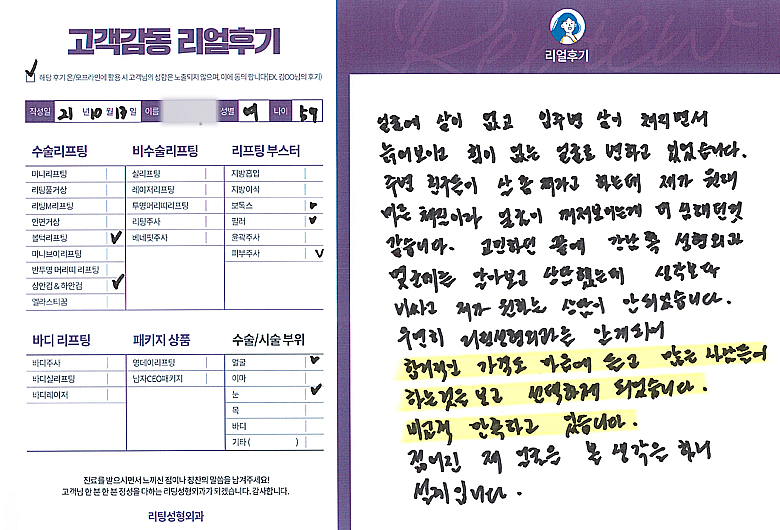 고객감동 리얼후기
해당 후기 온/오프라인에 활용 시 고객님의 성함은 노출되지 않으며, 이에 동의 합니다(EX. 김OO님의 후기)
작성일 21 년 10 월 13 일 이름 성별 여 나이 59
수술리프팅
미니리프팅
리팅풀거상
리팅M리프팅
안면거상
볼턱리프팅
미니브이리프팅
반투명 머리띠 리프팅
상안검 & 하안검
엘라스티꿈
비수술리프팅
실리프팅
레이저리프팅
투명머리띠리프팅
리팅주사
베네핏주사
리프팅 부스터
지방흡입
지방이식
보톡스
필러
윤곽주사
피부주사
바디 리프팅
바디주사
바디실리프팅
바디레이저
패키지 상품
영데이리프팅
남자CEO패키지
수술/시술 부위
얼굴
이마
눈
목
바디
기타 ( )
진료를 받으시면서 느끼신 점이나 칭찬의 말씀을 남겨주세요!
고객님 한 분 한 분 정성을 다하는 리팅성형외과가 되겠습니다. 감사합니다.
리팅성형외과
Review
리얼후기
얼굴에 살이 없고 입주변 살이 쳐지면서
늙어보이고 힘이 없는 얼굴로 변하고 있었습니다.
주변 친구들이 살 좀 찌라고 하는데 제가 원래
마른 체질이라 얼굴이 꺼져보이는게 더 심해던것
같습니다. 고민하던 끝에 강남 쪽 성형외과
몇군데는 알아보고 상담했는데 생각보다
비싸고 제가 원하는 상담이 안되었습니다.
우연히 리팅성형외과는 알게되어
합리적인 가격도 마음에 들고 많은 사람들이
하는것을 보고 선택하게 되었습니다.
비교적 만족하고 있습니다.
젊어진 제 얼굴은 볼 생각을 하니
설레입니다.